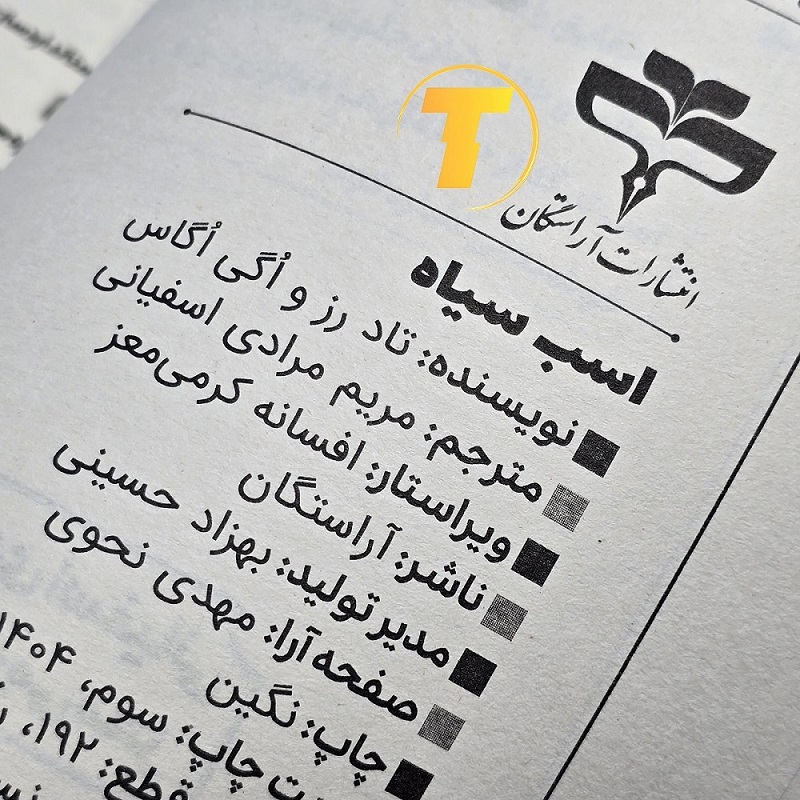 T
انتشارات آراستگان
اسب سیاه
نویسنده: تاد رز و اُگی اُگاس
مترجم: مریم مرادی اسفیانی
ویراستار: افسانه کرمی‌معز
ناشر: آراستگان
مدیر تولید: بهزاد حسینی
صفحه آرا: مهدی نحوی
چاپ: نگین
ت چاپ: سوم، ۱۴۰۴
قطع: ۱۹۲،